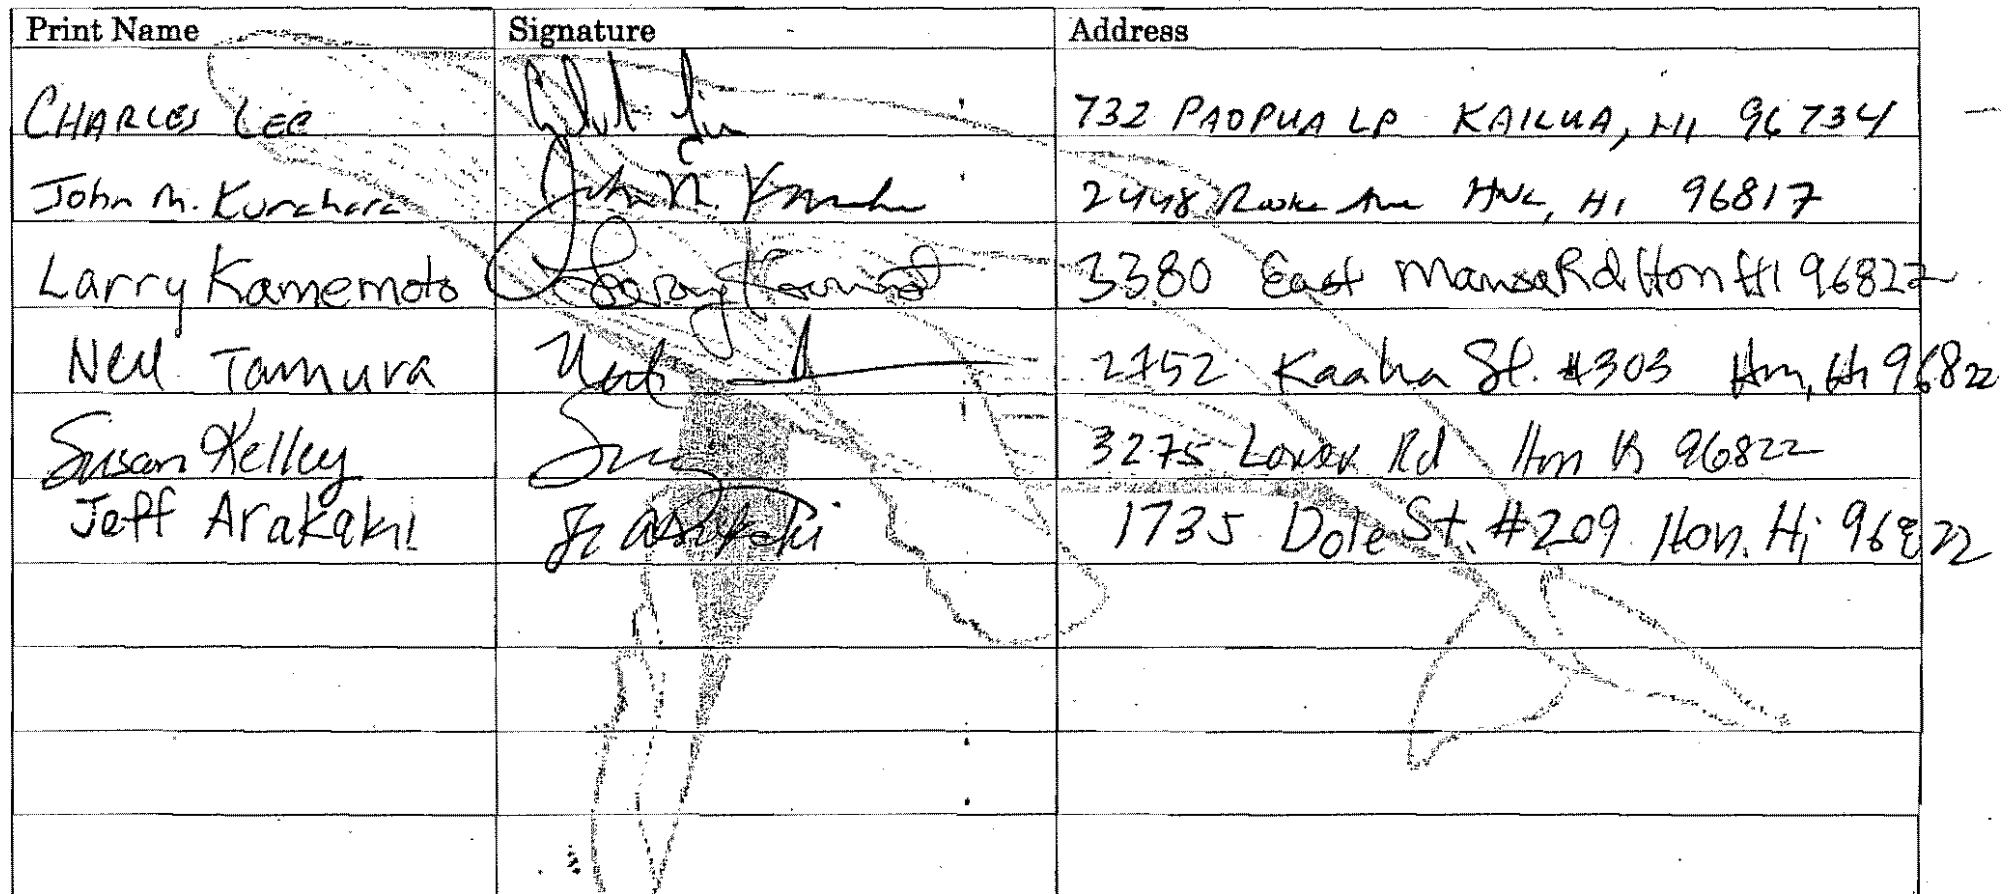 Print Name Signature Address
CHARLES LEE 732 PAOPUA LP KAILUA, HI 96734
John M. Kurahara John M. 2448 Rooke Ave HNL, HI 96817
Larry Kamemoto Larry Kamemoto 3380 East Manoa Rd Hon HI 96822
Neil Tamura 2752 Kaaha St. #303 Hon, HI 96822
Susan Kelley 3275 Lower Rd Hon 96822
Jeff Arakaki Arakaki 1735 Dole St. #209 Hon. Hi 96822